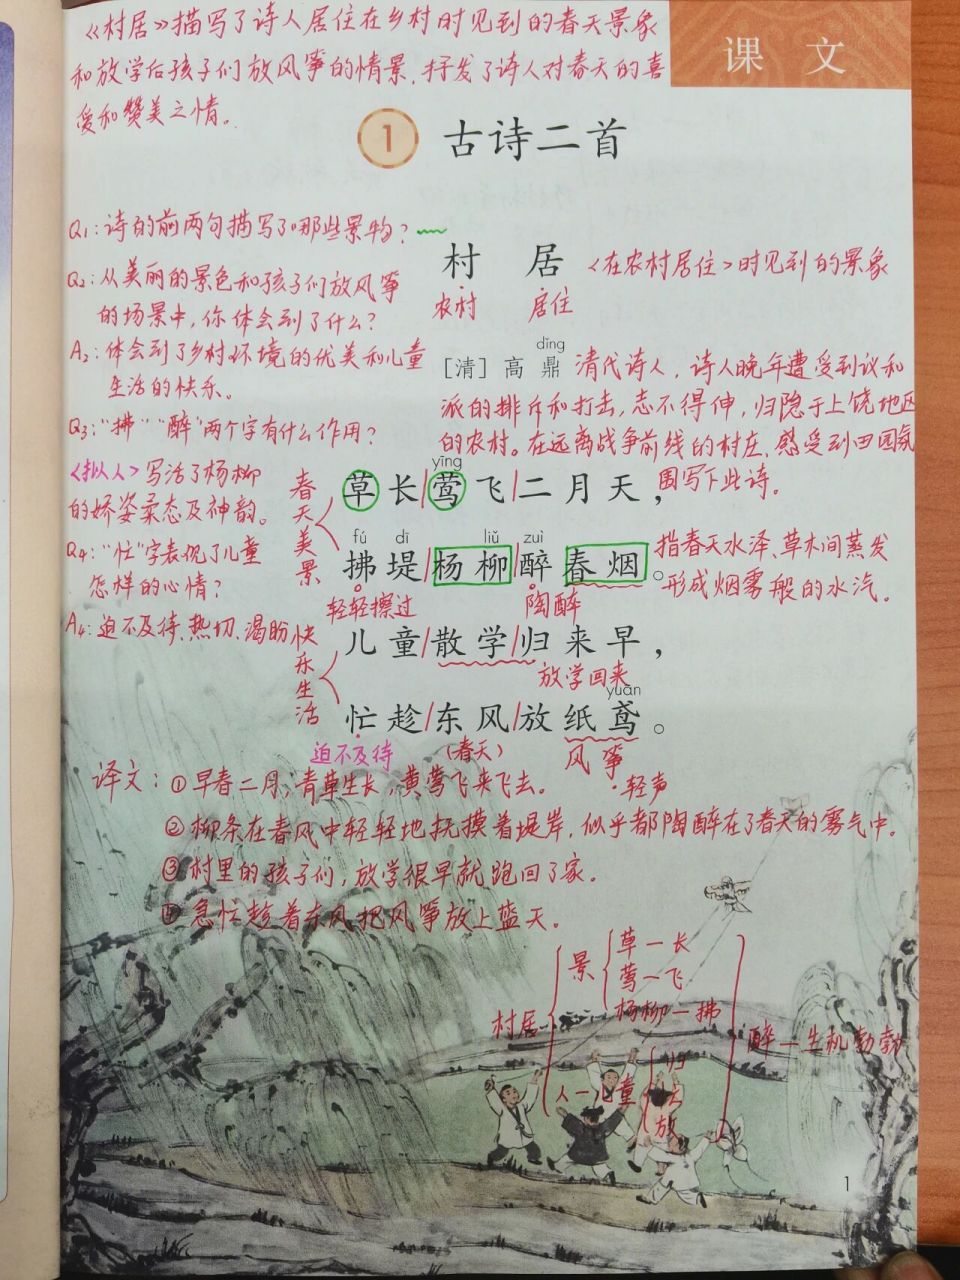 《村居》描写了诗人居住在乡村时见到的春天景象
和放学后孩子们放风筝的情景,抒发了诗人对春天的喜
爱和赞美之情。
课 文
1 古诗二首
Q₁:诗的前两句描写了哪些景物?
Q₂:从美丽的景色和孩子们放风筝
的场景中,你体会到了什么?
A₂:体会到了乡村环境的优美和儿童
生活的快乐。
Q₃:“拂”“醉”两个字有什么作用?
<拟人>写活了杨柳
的娇姿柔态及神韵。
Q₄:“忙”字表现了儿童
怎样的心情?
A₄:迫不及待、热切、渴盼
村 居 <在农村居住>时见到的景象
农村 居住
dǐng
[清] 高 鼎 清代诗人,诗人晚年遭受到议和
派的排斥和打击,志不得伸,归隐于上饶地区
的农村。在远离战争前线的村庄,感受到田园氛
围写下此诗。
春天美景
yīng
草长|莺飞|二月天,
fú dī liǔ zuì
拂堤|杨柳|醉春烟。
指春天水泽、草木间蒸发
形成烟雾般的水汽。
轻轻擦过 陶醉
快乐生活
儿童|散学|归来早,
放学回来
yuān
忙趁|东风|放纸鸢。
迫不及待 (春天) 风筝
·轻声
译文:①早春二月,青草生长,黄莺飞来飞去。
②柳条在春风中轻轻地抚摸着堤岸,似乎都陶醉在了春天的雾气中。
③村里的孩子们,放学很早就跑回了家。
④急忙趁着东风把风筝放上蓝天。
村居
景
草—长
莺—飞
杨柳—拂
人—儿童
归
放
醉—生机勃勃
1